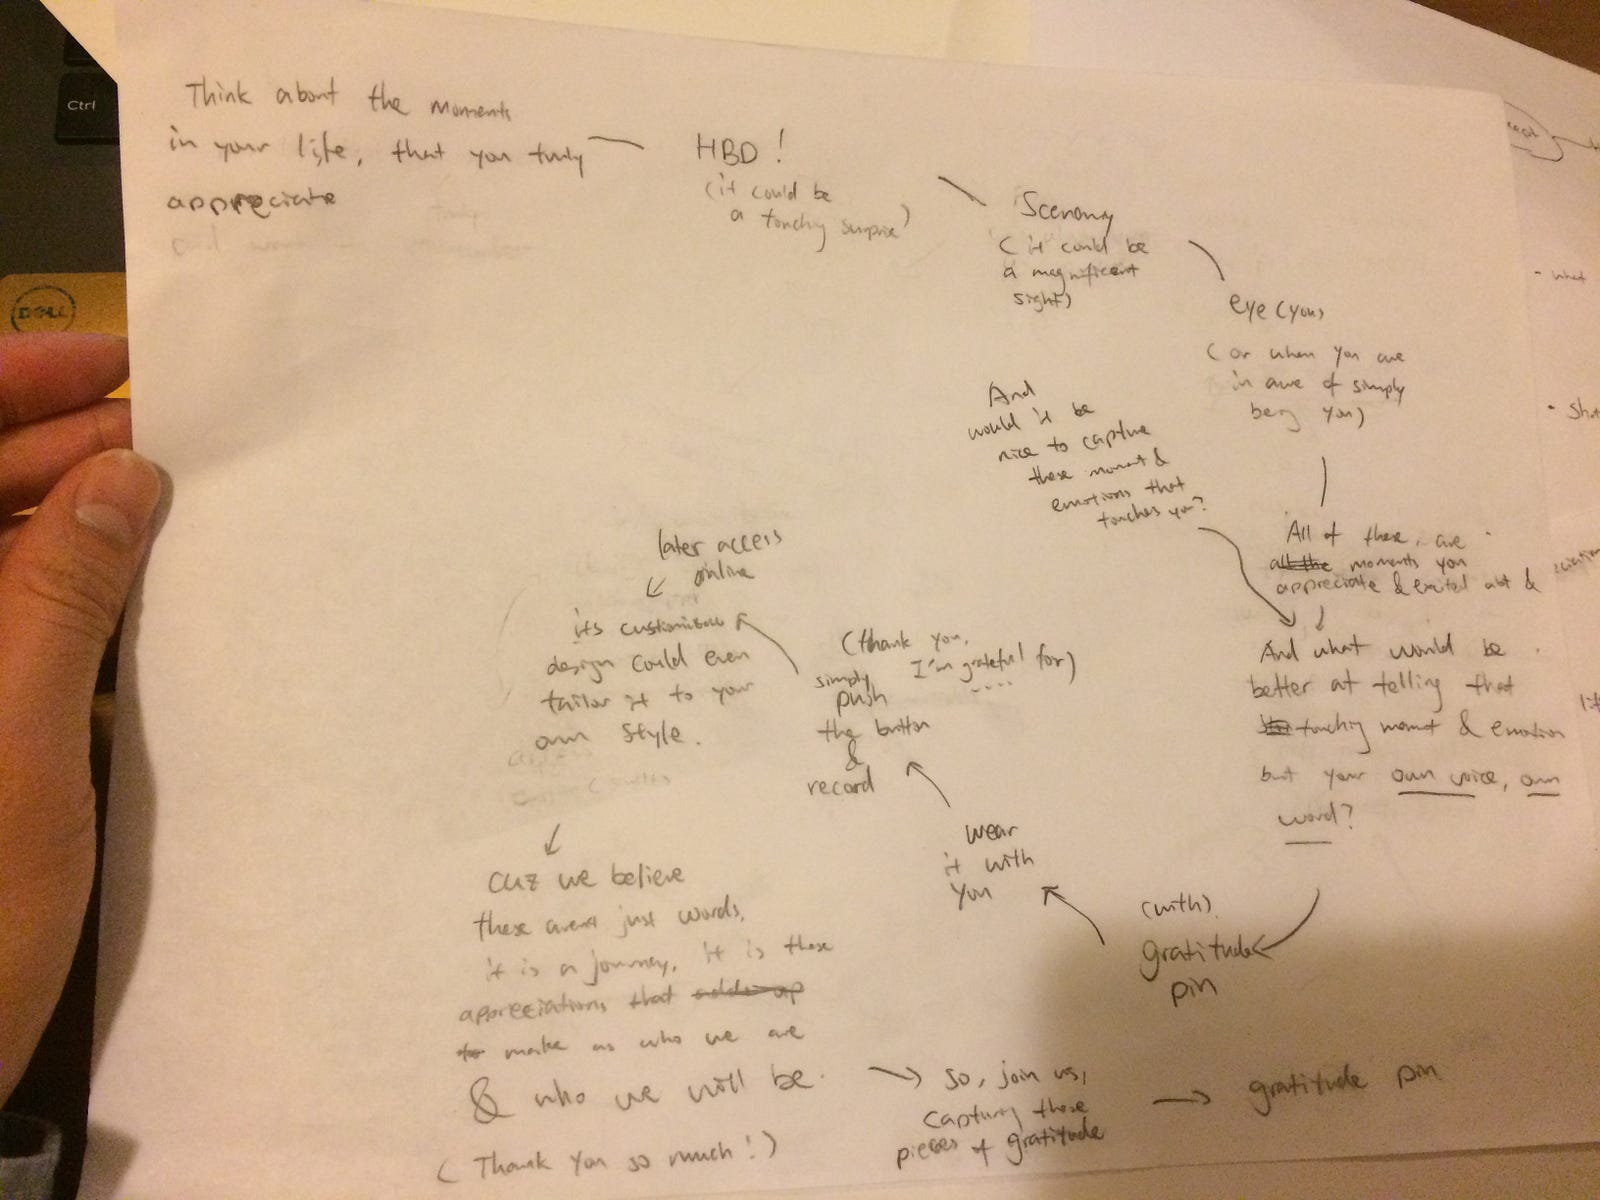 Ctrl
DELL
Think about the moments
in your life, that you truly
appreciate
HBD!
(it could be
a touching surprise)
Scenary
(it could be
a magnificent
sight)
eye (you)
(or when you are
in awe of simply
being you)
And
would it be
nice to capture
these moment &
emotions that
touches you?
All of these, are
all the moments you
appreciate & excited abt &
And what would be
better at telling that
touching momt & emotion
but your own voice, own
word?
(with)
gratitude
pin
wear
it with
you
(thank you,
I'm grateful for)
....
simply
push
the button
&
record
later access
online
its customisable
design could even
tailor it to your
own style.
cuz we believe
these arent just words,
it is a journey, it is these
appreciations that adds up
to make us who we are
& who we will be.
(Thank you so much!)
so, join us,
capturing these
pieces of gratitude
gratitude pin
what